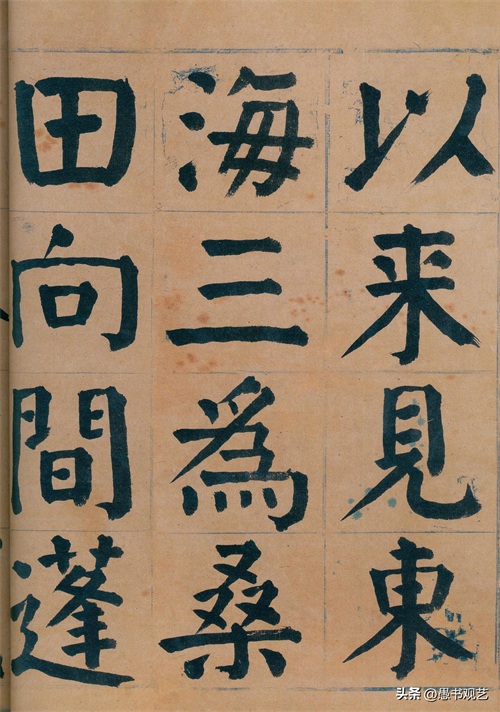 以来見東
海三為桑
田向間蓬
头条 @愚书观艺